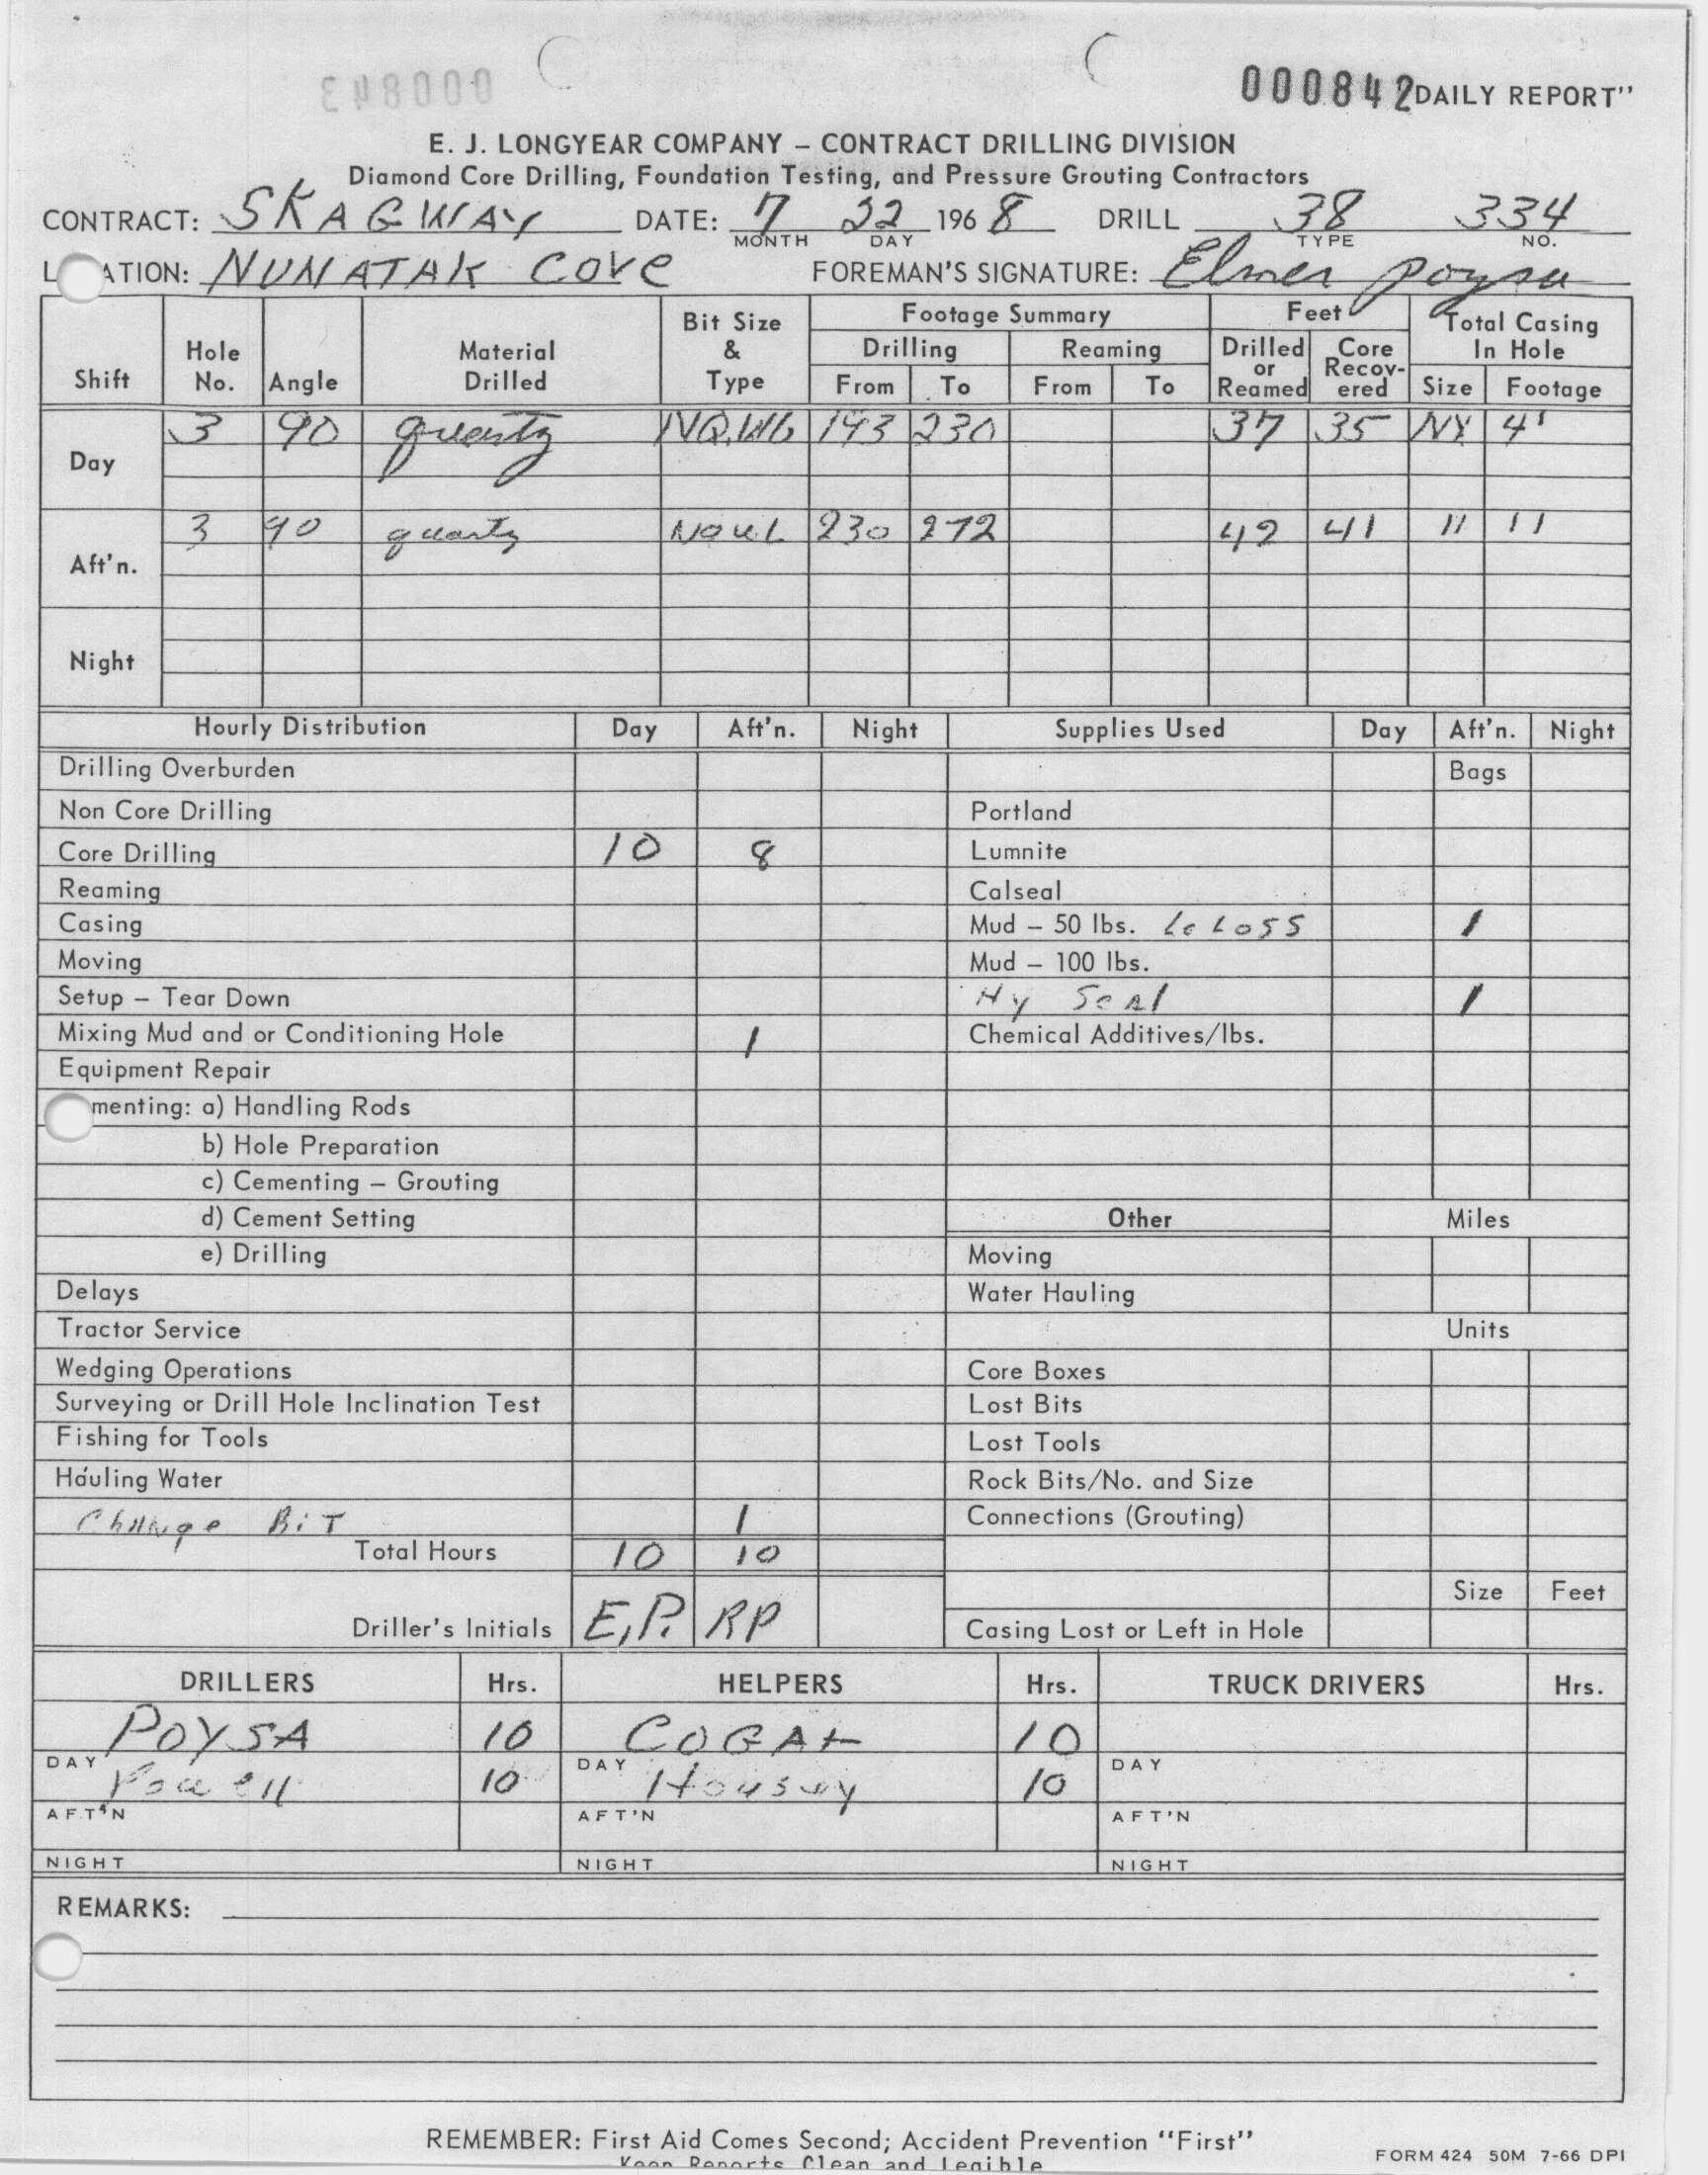 000843
000842 DAILY REPORT"
E. J. LONGYEAR COMPANY – CONTRACT DRILLING DIVISION
Diamond Core Drilling, Foundation Testing, and Pressure Grouting Contractors
CONTRACT: SKAGWAY DATE: 7 22 1968 DRILL 38 334
MONTH DAY TYPE NO.
L ATION: NUNATAK COVE FOREMAN'S SIGNATURE: Elmer Poysa
Shift Hole No. Angle Material Drilled Bit Size & Type Footage Summary Drilling From To Reaming From To Feet Drilled or Reamed Core Recov-ered Total Casing In Hole Size Footage
Day 3 90 quartz NQ.WL 193 230 37 35 NX 4'
Aft'n. 3 90 quartz NQWL 230 272 42 41 " "
Night
Hourly Distribution Day Aft'n. Night Supplies Used Day Aft'n. Night
Drilling Overburden Bags
Non Core Drilling Portland
Core Drilling 10 8 Lumnite
Reaming Calseal
Casing Mud – 50 lbs. Loss 1
Moving Mud – 100 lbs.
Setup – Tear Down Hy Seal 1
Mixing Mud and or Conditioning Hole 1 Chemical Additives/lbs.
Equipment Repair
menting: a) Handling Rods
b) Hole Preparation
c) Cementing – Grouting
d) Cement Setting Other Miles
e) Drilling Moving
Delays Water Hauling
Tractor Service Units
Wedging Operations Core Boxes
Surveying or Drill Hole Inclination Test Lost Bits
Fishing for Tools Lost Tools
Hauling Water Rock Bits/No. and Size
Change BiT 1 Connections (Grouting)
Total Hours 10 10
Size Feet
Driller's Initials E.P. RP Casing Lost or Left in Hole
DRILLERS Hrs. HELPERS Hrs. TRUCK DRIVERS Hrs.
POYSA 10 10
DAY DAY DAY
Powell 10 10
AFT'N AFT'N AFT'N
NIGHT NIGHT NIGHT
REMARKS:
REMEMBER: First Aid Comes Second; Accident Prevention "First"
Keep Reports Clean and Legible
FORM 424 50M 7-66 DPI